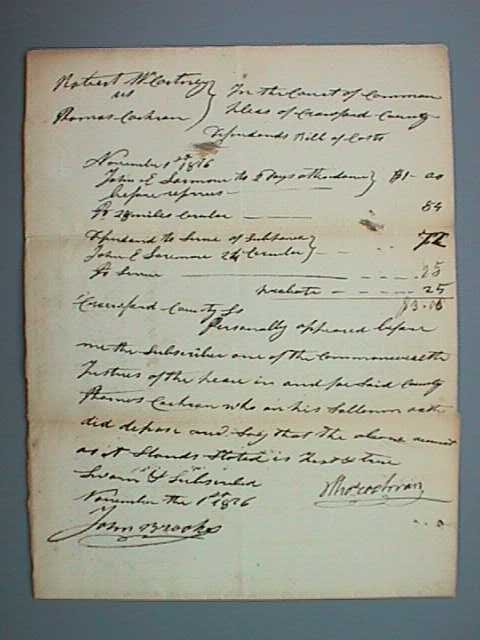 Robert McCortney } In the Court of Common
vs
Thomas Cochran } Pleas of Crawford County
Defendants Bill of Costs
November 1st 1816
John E Saremore to 2 Days attendance } $1-00
before referees -
To 28 miles Circular - 84
Defendand to Serve of Subpoena } 72
John E Saremore 24 Circular } -
To Service .25
probate - 25
$3.06
Crawford County Ss
Personally appeared before
me the Subscriber one of the Commonwealths
Justices of the peace in and for Said County
Thomas Cochran who on his Sollemn oath
did depose and Say that the above account
as it Stands Stated is Just & true
Sworn & Subscribed
November the 1st 1816
Tho Cochran
John Brooks